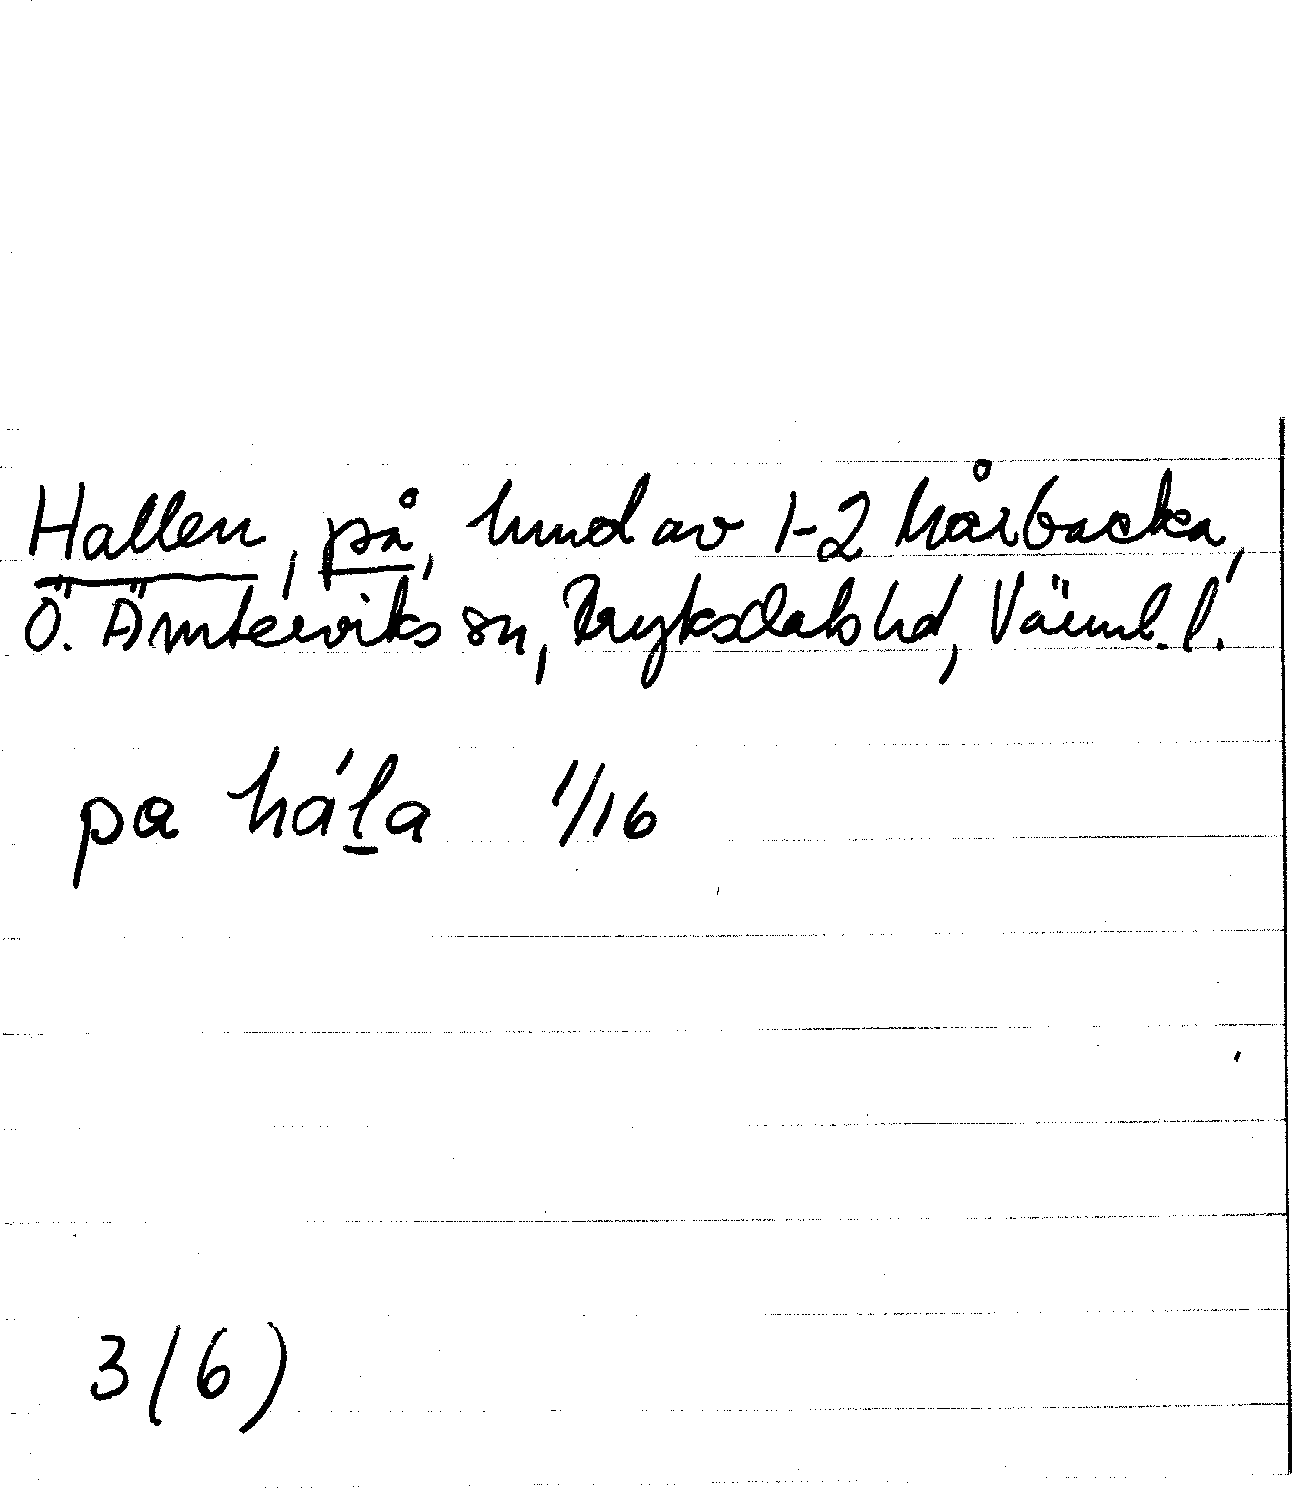 Hallen, på, hmd av 1-2 Mårbacka,
Ö. Ämterviks sn, Fryksdals hd, Värml. l.
pa háḻa 1/16
3(6)